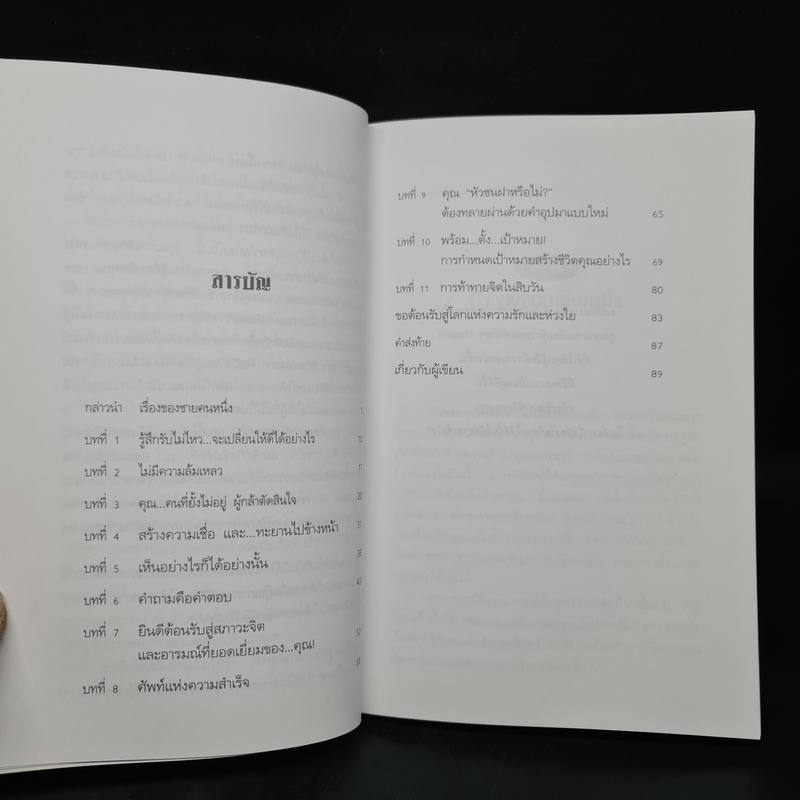 สารบัญ
กล่าวนำ เรื่องของชายคนหนึ่ง 1
บทที่ 1 รู้สึกรับไม่ไหว...จะเปลี่ยนให้ดีได้อย่างไร 10
บทที่ 2 ไม่มีความล้มเหลว 17
บทที่ 3 คุณ...คนที่ยั้งไม่อยู่ ผู้กล้าตัดสินใจ 20
บทที่ 4 สร้างความเชื่อ และ...ทะยานไปข้างหน้า 31
บทที่ 5 เห็นอย่างไรก็ได้อย่างนั้น 38
บทที่ 6 คำถามคือคำตอบ 43
บทที่ 7 ยินดีต้อนรับสู่สภาวะจิต
และอารมณ์ที่ยอดเยี่ยมของ...คุณ! 52
บทที่ 8 ศัพท์แห่งความสำเร็จ 58
บทที่ 9 คุณ "หัวชนฝาหรือไม่?"
ต้องทลายผ่านด้วยคำอุปมาแบบใหม่ 65
บทที่ 10 พร้อม...ตั้ง...เป้าหมาย!
การกำหนดเป้าหมายสร้างชีวิตคุณอย่างไร 69
บทที่ 11 การท้าทายจิตในสิบวัน 80
ขอต้อนรับสู่โลกแห่งความรักและห่วงใย 83
คำส่งท้าย 87
เกี่ยวกับผู้เขียน 89